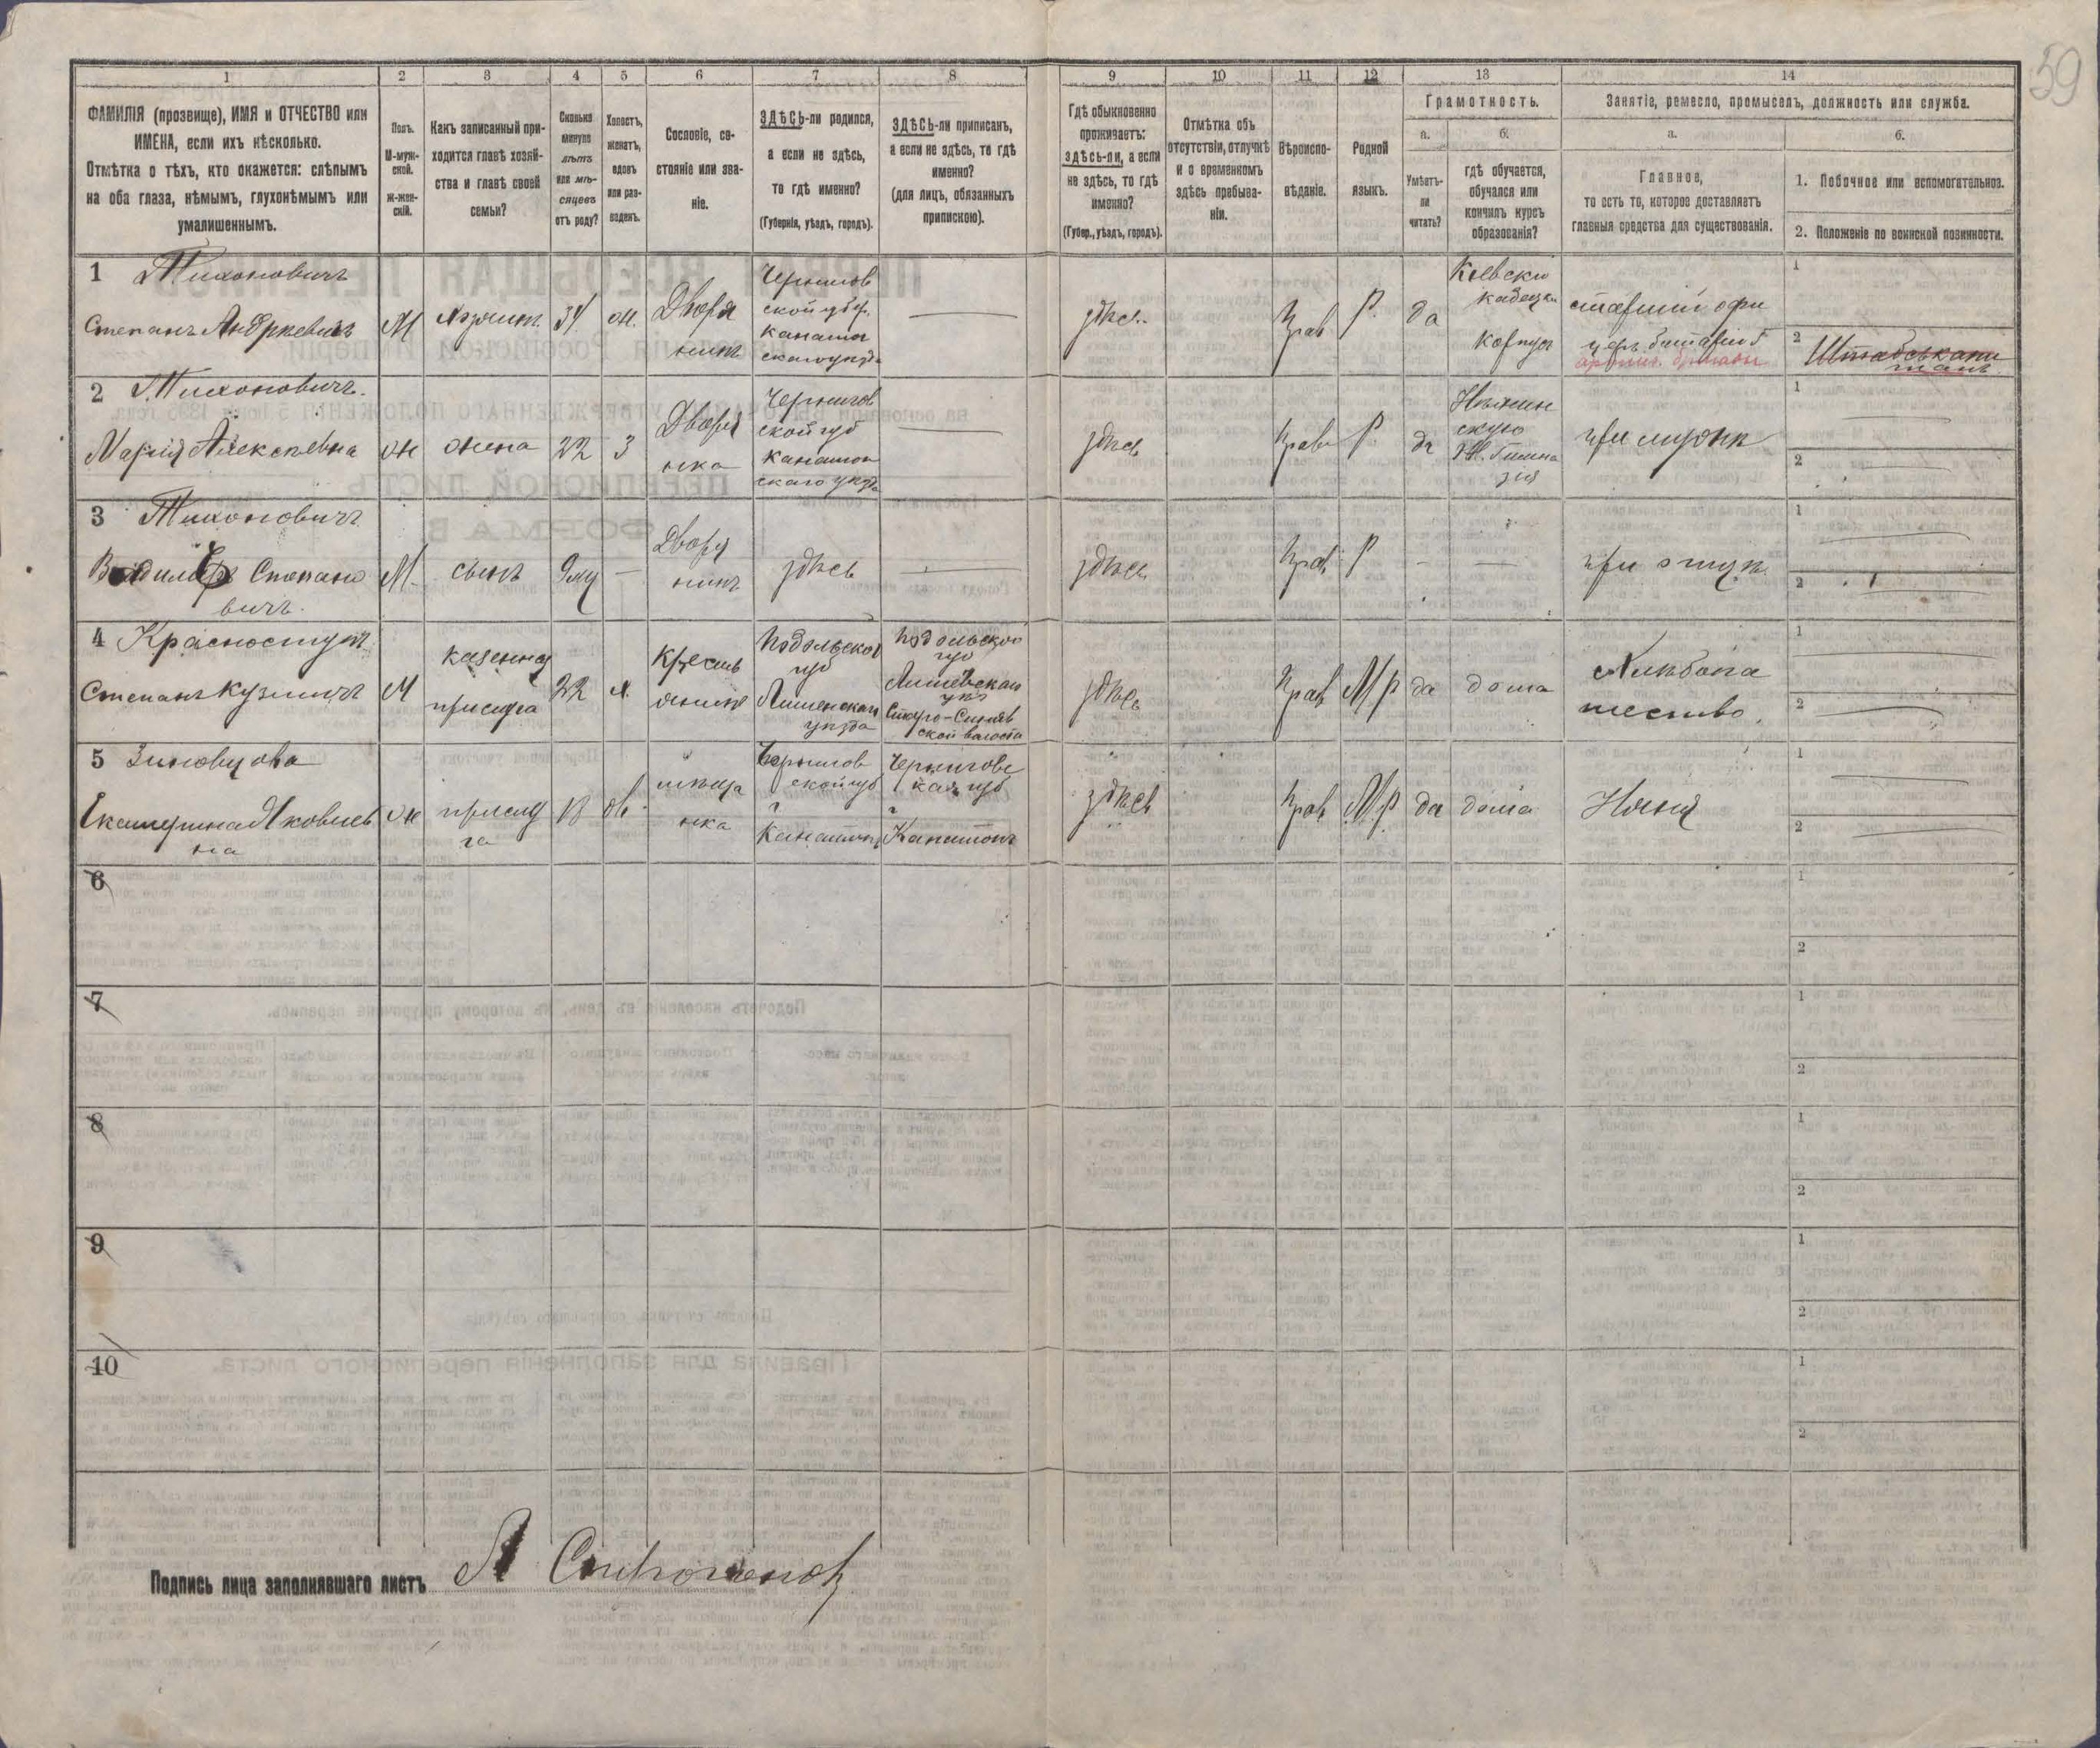 59
1 2 3 4 5 6 7 8 9 10 11 12 13 14
ФАМИЛІЯ (прозвище), ИМЯ и ОТЧЕСТВО или
ИМЕНА, если ихъ нѣсколько.
Отмѣтка о тѣхъ, кто окажется: слѣпымъ
на оба глаза, нѣмымъ, глухонѣмымъ или
умалишеннымъ.
Полъ.
М-муж-
ской.
Ж-жен-
скій.
Какъ записанный при-
ходится главѣ хозяй-
ства и главѣ своей
семьи?
Сколько
минуло
лѣтъ
или мѣ-
сяцевъ
отъ роду?
Холостъ,
женатъ,
вдовъ
или раз-
веденъ.
Сословіе, со-
стояніе или зва-
ніе.
ЗДѢСЬ-ли родился,
а если не здѣсь,
то гдѣ именно?
(Губернія, уѣздъ, городъ).
ЗДѢСЬ-ли приписанъ,
а если не здѣсь, то гдѣ
именно?
(для лицъ, обязанныхъ
припискою).
Гдѣ обыкновенно
проживаетъ:
здѣсь-ли, а если
не здѣсь, то гдѣ
именно?
(Губер., уѣздъ, городъ).
Отмѣтка объ
отсутствіи, отлучкѣ
и о временномъ
здѣсь пребыва-
ніи.
Вѣроиспо-
вѣданіе.
Родной
языкъ.
Грамотность.
а.
Умѣетъ-
ли
читать?
б.
гдѣ обучается,
обучался или
кончилъ курсъ
образованія?
Занятіе, ремесло, промыселъ, должность или служба.
а.
Главное,
то есть то, которое доставляетъ
главныя средства для существованія.
б.
1. Побочное или вспомогательное.
2. Положеніе по воинской повинности.
1 Тихоновичъ
Степанъ Андреевичъ
М
хозяин.
34
Дворя
нинъ
Чернигов
ской губ.
здѣсь
Прав
Р.
да
Кіевски
кадецки
корпусъ
старшій офи
1
2 Штабскапи
танъ
2 Тихоновичъ.
Марія Алексѣевна
ж
жена
22
З
Дворя
нка
Чернигов
ской губ
здѣсь
Прав
Р.
да
Нѣжин
скую
Ж. Гимна
зія
при мужѣ
1
2
3 Тихоновичъ
Степано
вичъ.
М
сынъ
9 мц
—
Дворя
нинъ
здѣсь
здѣсь
Прав
Р
— —
при отцѣ
1
2
4
Степанъ Кузмичъ
М
казенная
прислуга
22
х.
Кресть
янинъ
Подольской
губ
уѣзда
Подольской
губ
Старо-Синяв
ской волости
здѣсь
Прав
М/р
да
дома
Хлѣбопа
шество.
1
2
5 Зиновцова
Екатерина Яковлев
на
ж
прислу
га
18
мѣща
нка
Чернигов
ской губ
Черниговс
кая губ
здѣсь
Прав
М/р
да
дома
Няня
1
2
6
1
2
7
1
2
8
1
2
9
1
2
10
1
2
Подпись лица заполнявшаго листъ